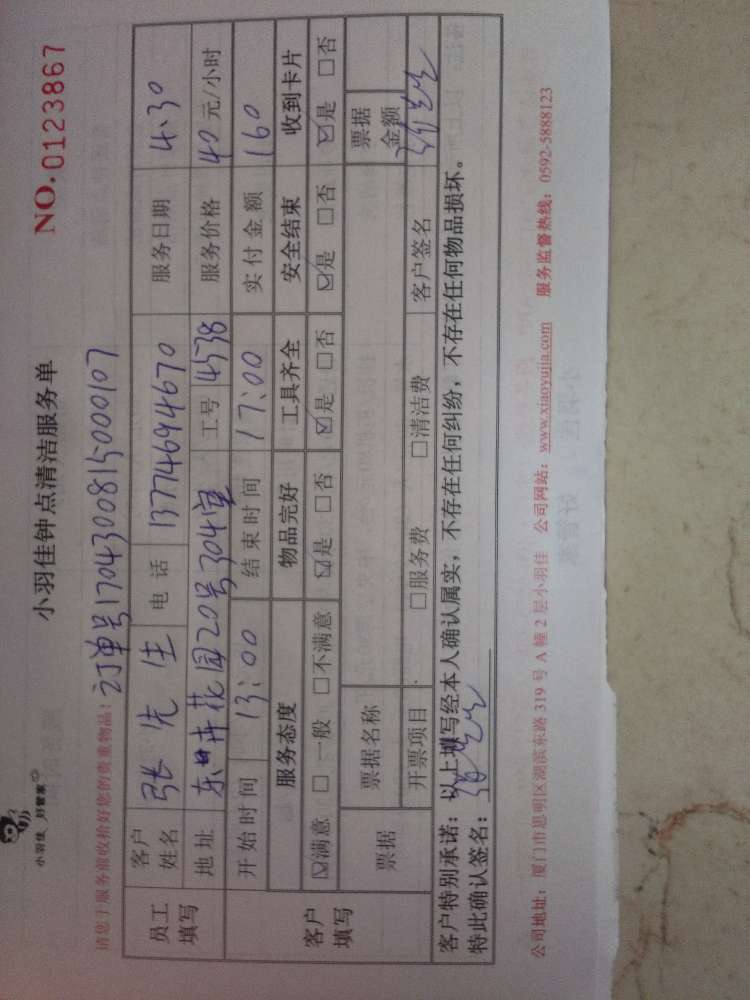 小羽佳 好管家
小羽佳钟点清洁服务单
NO. 0123867
请您于服务前收拾好您的贵重物品!
订单号170430081500107
员工填写
客户姓名 张先生 电话 13774694670 服务日期 4.30
地址 花园20号304室 工号 4538 服务价格 40元/小时
开始时间 13:00 结束时间 17:00 实付金额 160
客户填写
服务态度 物品完好 工具齐全 安全结束 收到卡片
☑满意 □一般 □不满意 ☑是 □否 ☑是 □否 ☑是 □否 ☑是 □否
票据 票据名称 票据金额
开票项目 □服务费 □清洁费 客户签名
客户特别承诺:以上填写经本人确认属实,不存在任何纠纷,不存在任何物品损坏。
特此确认签名:
公司地址:厦门市思明区湖滨东路 319 号 A 幢 2 层小羽佳 公司网站:www.xiaoyujia.com 服务监督热线:0592-5888123